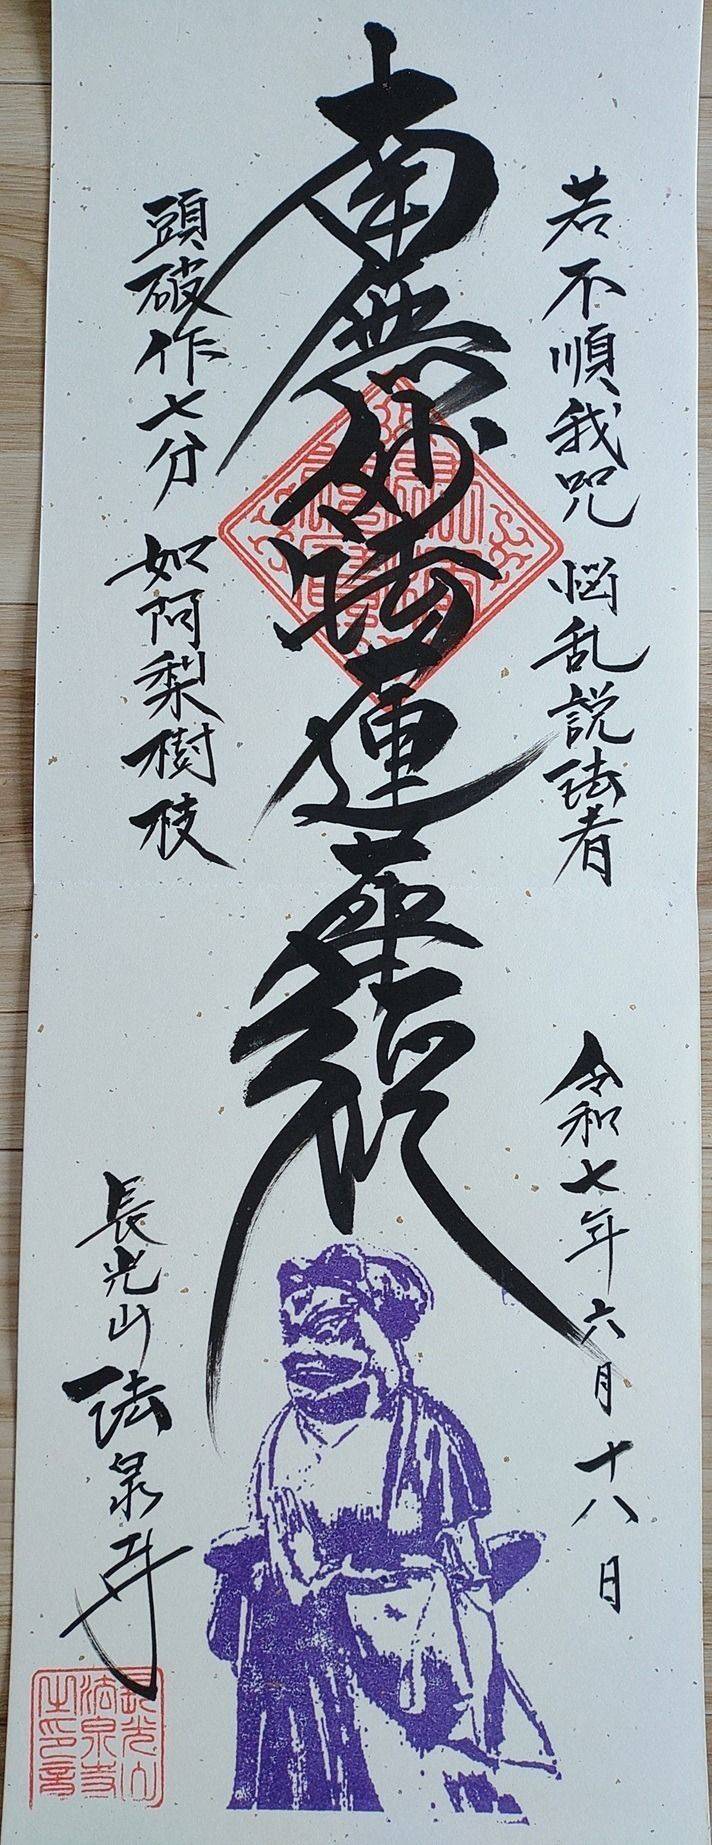 若不順我咒 悩乱説法者
令和七年六月十八日
南無妙法蓮華経
頭破作七分 如阿梨樹枝
長光山 法泉寺
長光山
法泉寺